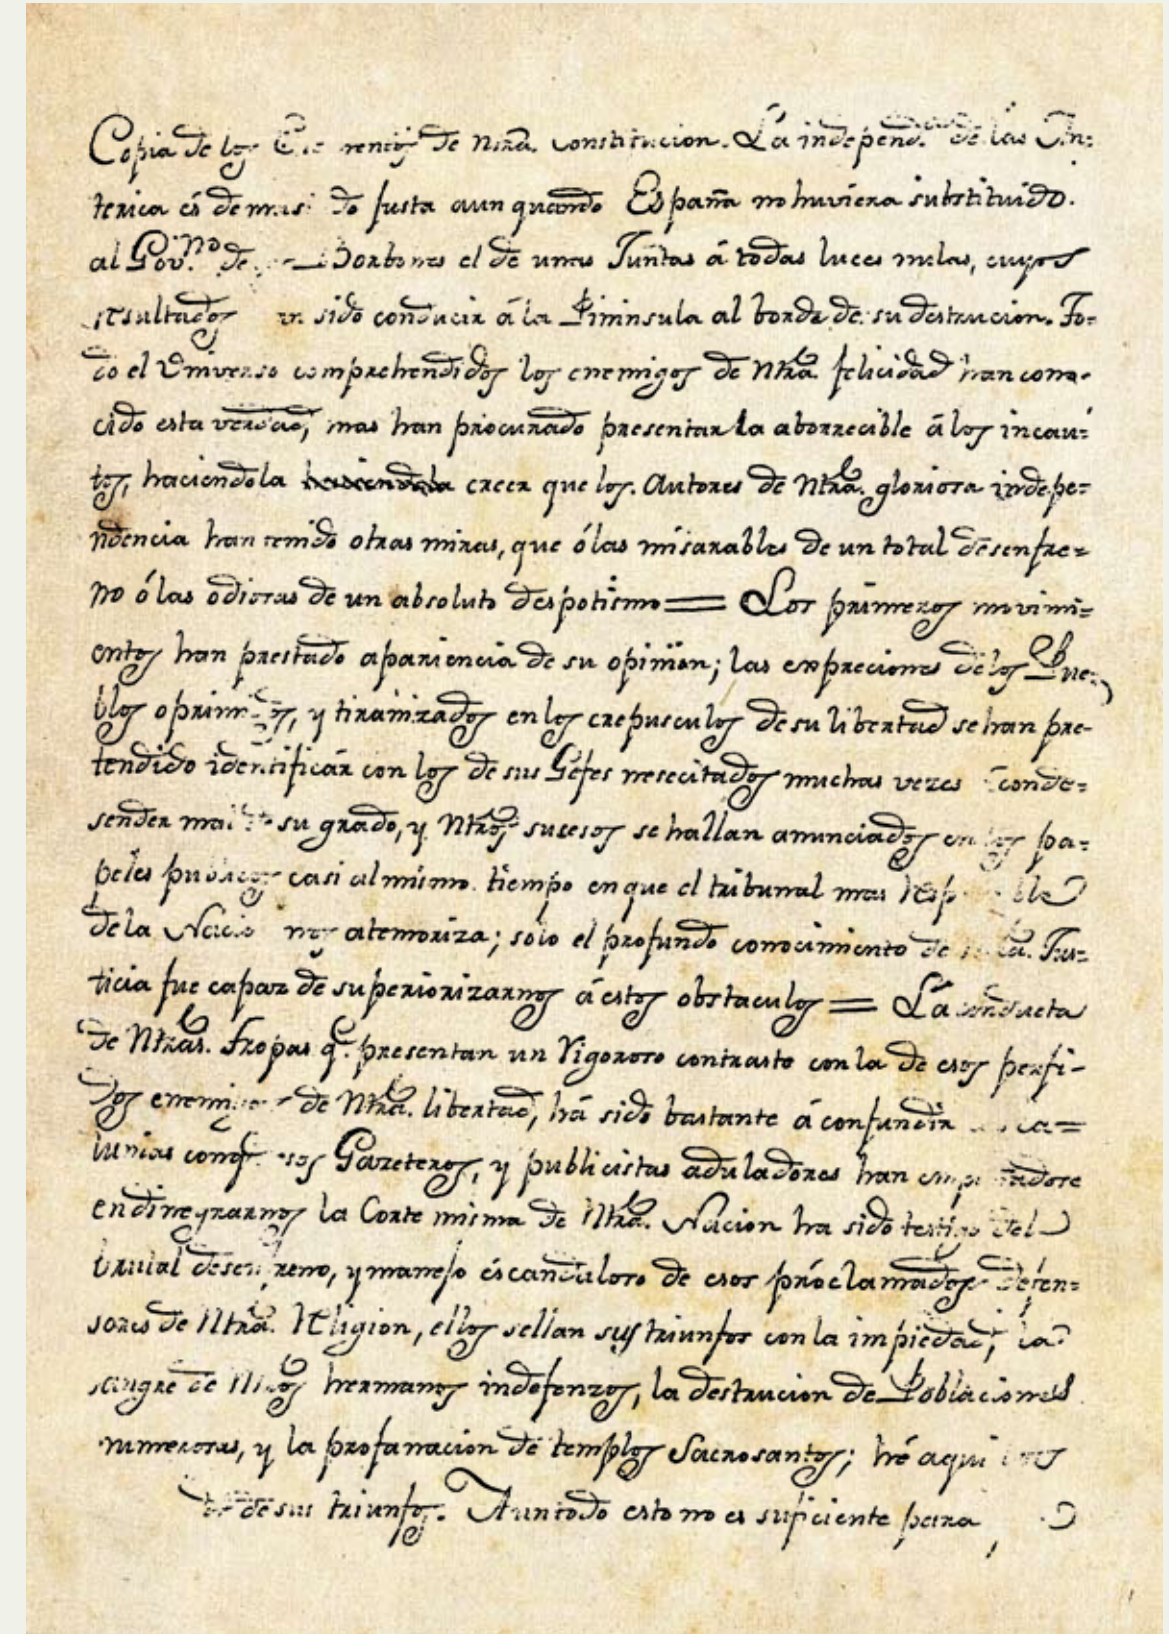 Copia de los de Ntra. Constitucion. La independ.ª de las
es demasi do justa aun quando España no huviera substituido.
al Gov.no de Borbones el de unas Juntas á todas luces nulas, cuyos
resultados sido conducir á la Pininsula al borde de su destrucion. To=
do el Universo comprehendidos los enemigos de Ntra. felicidad han cono-
cido esta verdad, mas han procurado presentarla aborrecible á los incau=
tos, haciendola creer que los. Autores de Ntra. gloriosa indepe=
ndencia han tenido otras miras, que ó las misarables de un total desenfre=
no ó las odiosas de un absoluto despotismo == Los primeros movimi=
entos han prestado apariencia de su opinion; las expreciones de los Pue=
blos oprimi os, y tiranizados en los crepusculos de su libertad se han pre-
tendido identificár con los de sus Géfes nesecitados muchas vezes á conde=
sender mal su grado, y Ntros. sucesos se hallan anunciados en los pa=
peles publicos casi al mismo tiempo en que el tribunal mas resp ble
de la Nacio nos atemoriza; solo el profundo conocimiento de Jus=
ticia fue capaz de superiorizarnos á estos obstaculos == La conducta
de Ntras. Tropas q.e presentan un Vigoroso contraste con la de esos perfi-
dos enemigos de Ntra. libertad, há sido bastante á confundir ca=
lunias conq.e sos Gazeteros, y publicistas aduladores han
endinegrarnos la Corte misma de Ntra. Nacion ha sido testigo del
brutal desenfreno, y manejo éscanduloso de esos próclamados defen=
sores de Ntra. Religion, ellos sellan sus triunfos con la impiedad, la
sangre de Ntros hermanos indefenzos, la destrucion de Poblaciones
numerosas, y la profanacion de templos Sacrosantos; hé aqui
de sus triunfos. Aun todo esto no es suficiente para